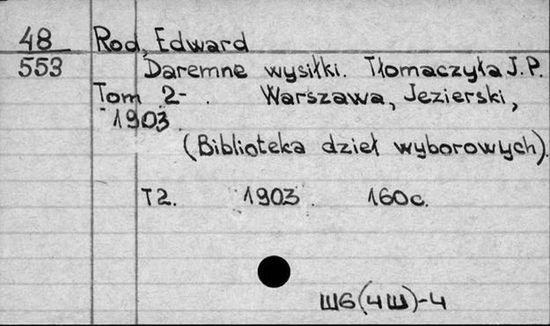 48 Rod, Edward
553 Daremne wysiłki. Tłomaczyła J.P.
Tom 2- . Warszawa, Jezierski,
1903
(Biblioteka dzieł wyborowych).
T2. 1903. 160c.
Ш6(4Ш)-4